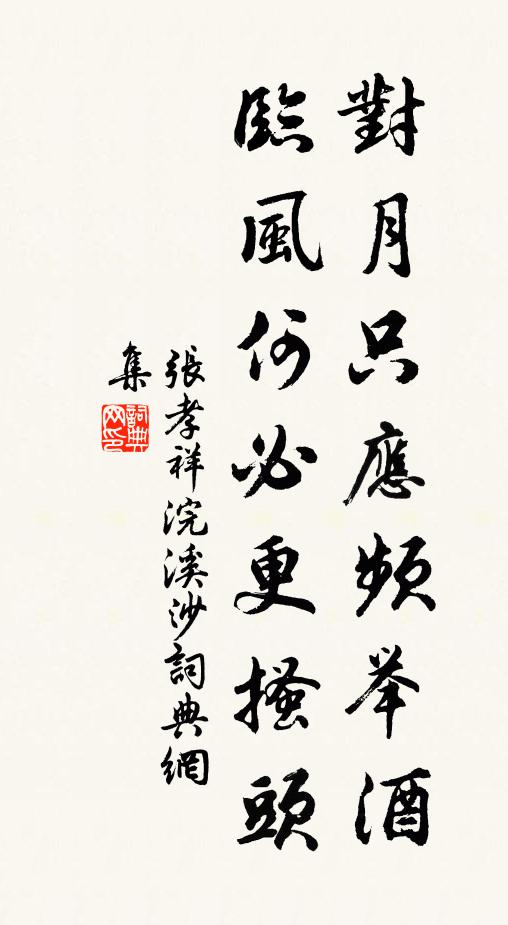 對月只應頻举酒
臨風何必更搔頭
張孝祥浣溪沙詞典網
集
詞典网印